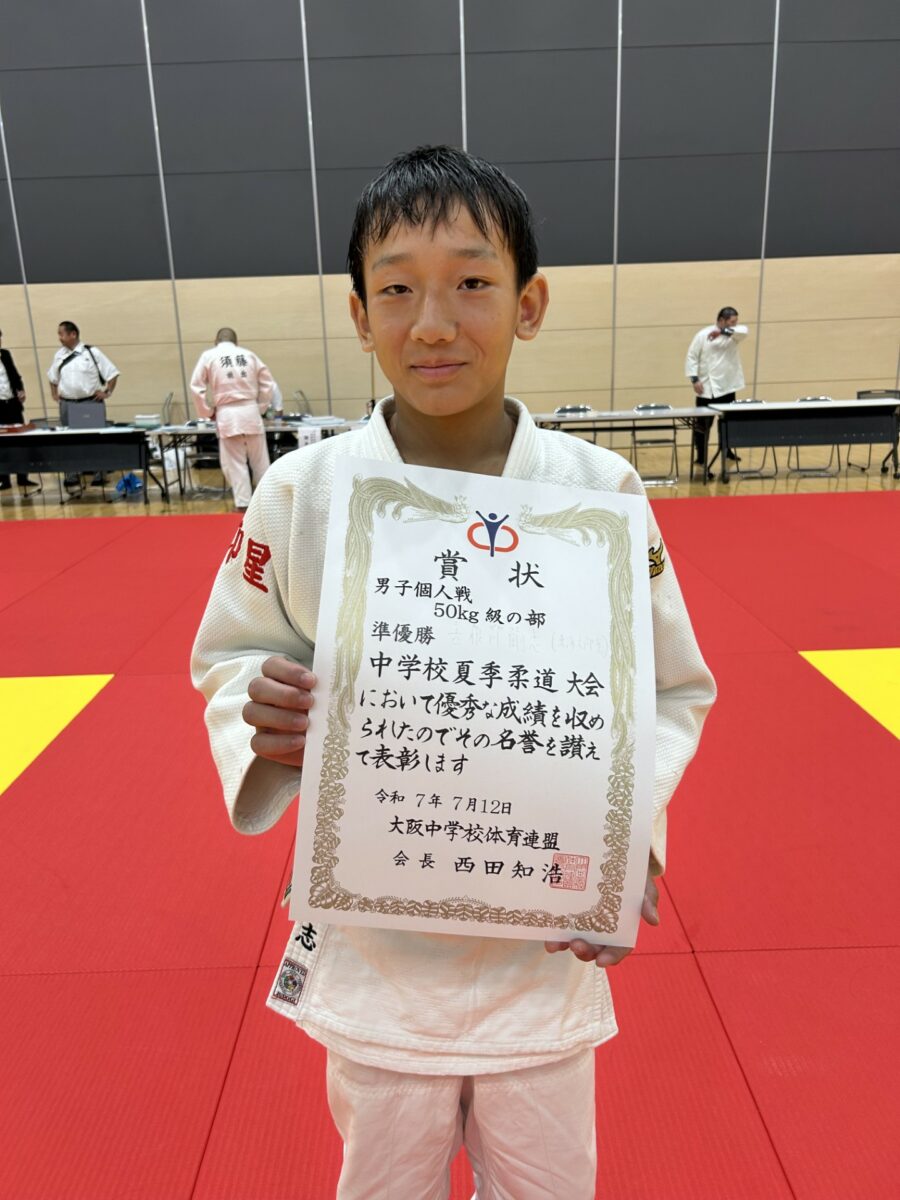 須藤
賞 状
男子個人戦
50kg 級の部
準優勝
中学校夏季柔道 大会
において優秀な成績を収め
られたのでその名誉を讃え
て表彰します
令和 7年 7月12日
大阪中学校体育連盟
会長 西田知浩
中星
志